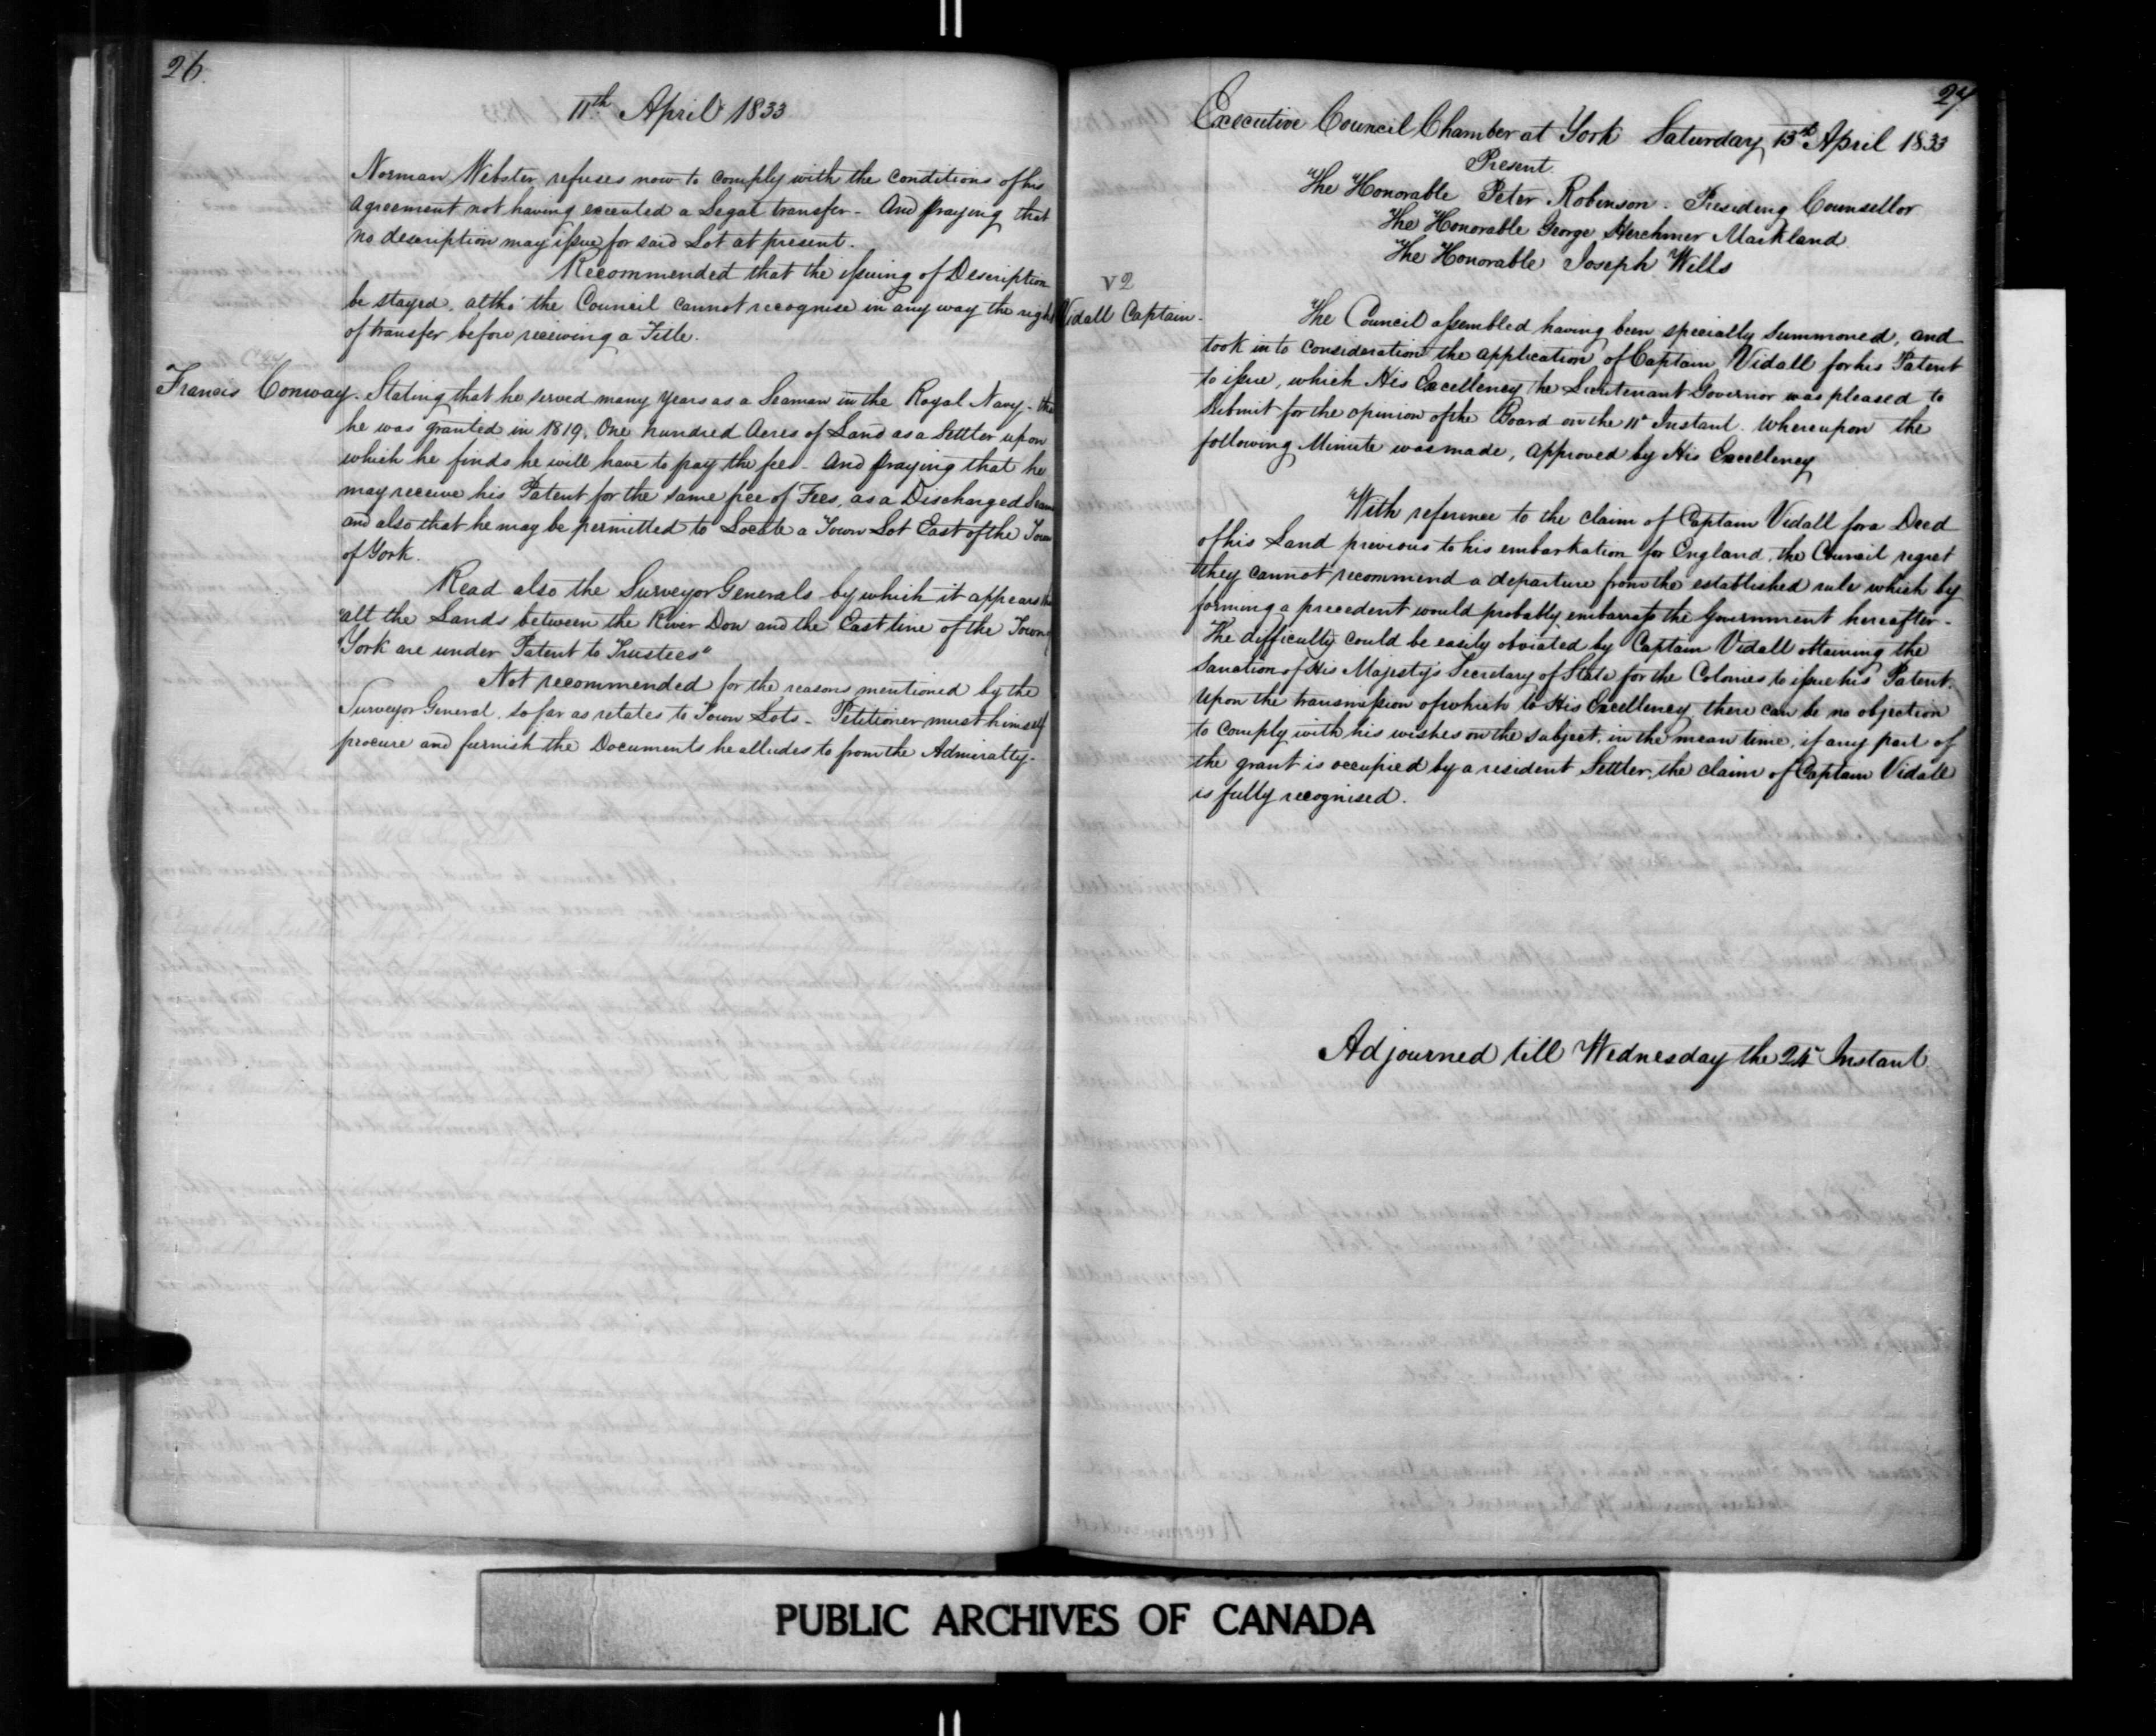 26.
11th April 1833
Norman Webster refuses now to comply with the conditions of his
agreement not having executed a Legal transfer - And praying that
no description may issue for said Lot at present.
Recommended that the issuing of Description
be stayed, altho' the Council cannot recognise in any way the right
of transfer before receiving a Title.
Francis Conway. Stating that he served many years as a Seaman in the Royal Navy - that
he was granted in 1819. One hundred Acres of Land as a Settler upon
which he finds he will have to pay the fee - And praying that he
may receive his Patent for the same free of Fees, as a Discharged Seaman
and also that he may be permitted to Locate a Town Lot East of the Town
of York.
Read also the Surveyor Generals by which it appears that
"all the Lands between the River Don and the East line of the Town of
"York are under Patent to Trustees"
Not recommended for the reasons mentioned by the
Surveyor General, so far as relates to Town Lots - Petitioner must himself
procure and furnish the Documents he alludes to from the Admiralty -
27
Executive Council Chamber at York Saturday 13th April 1833
Present
The Honorable Peter Robinson - Presiding Counsellor
The Honorable George Herchmer Markland
The Honorable Joseph Wells
V 2
Vidall Captain -
The Council assembled having been specially summoned, and
took into consideration the application of Captain Vidall for his Patent
to issue, which His Excellency the Lieutenant Governor was pleased to
submit for the opinion of the Board on the 11th Instant. Whereupon the
following Minute was made, approved by His Excellency
With reference to the claim of Captain Vidall for a Deed
of his Land previous to his embarkation for England, the Council regret
they cannot recommend a departure from the established rule which by
forming a precedent would probably embarrass the Government hereafter -
The difficulty could be easily obviated by Captain Vidall obtaining the
Sanction of His Majesty's Secretary of State for the Colonies to issue his Patent.
Upon the transmission of which to His Excellency there can be no objection
to comply with his wishes on the subject, in the mean time, if any part of
the grant is occupied by a resident Settler, the claim of Captain Vidall
is fully recognised.
Adjourned till Wednesday the Instant
PUBLIC ARCHIVES OF CANADA